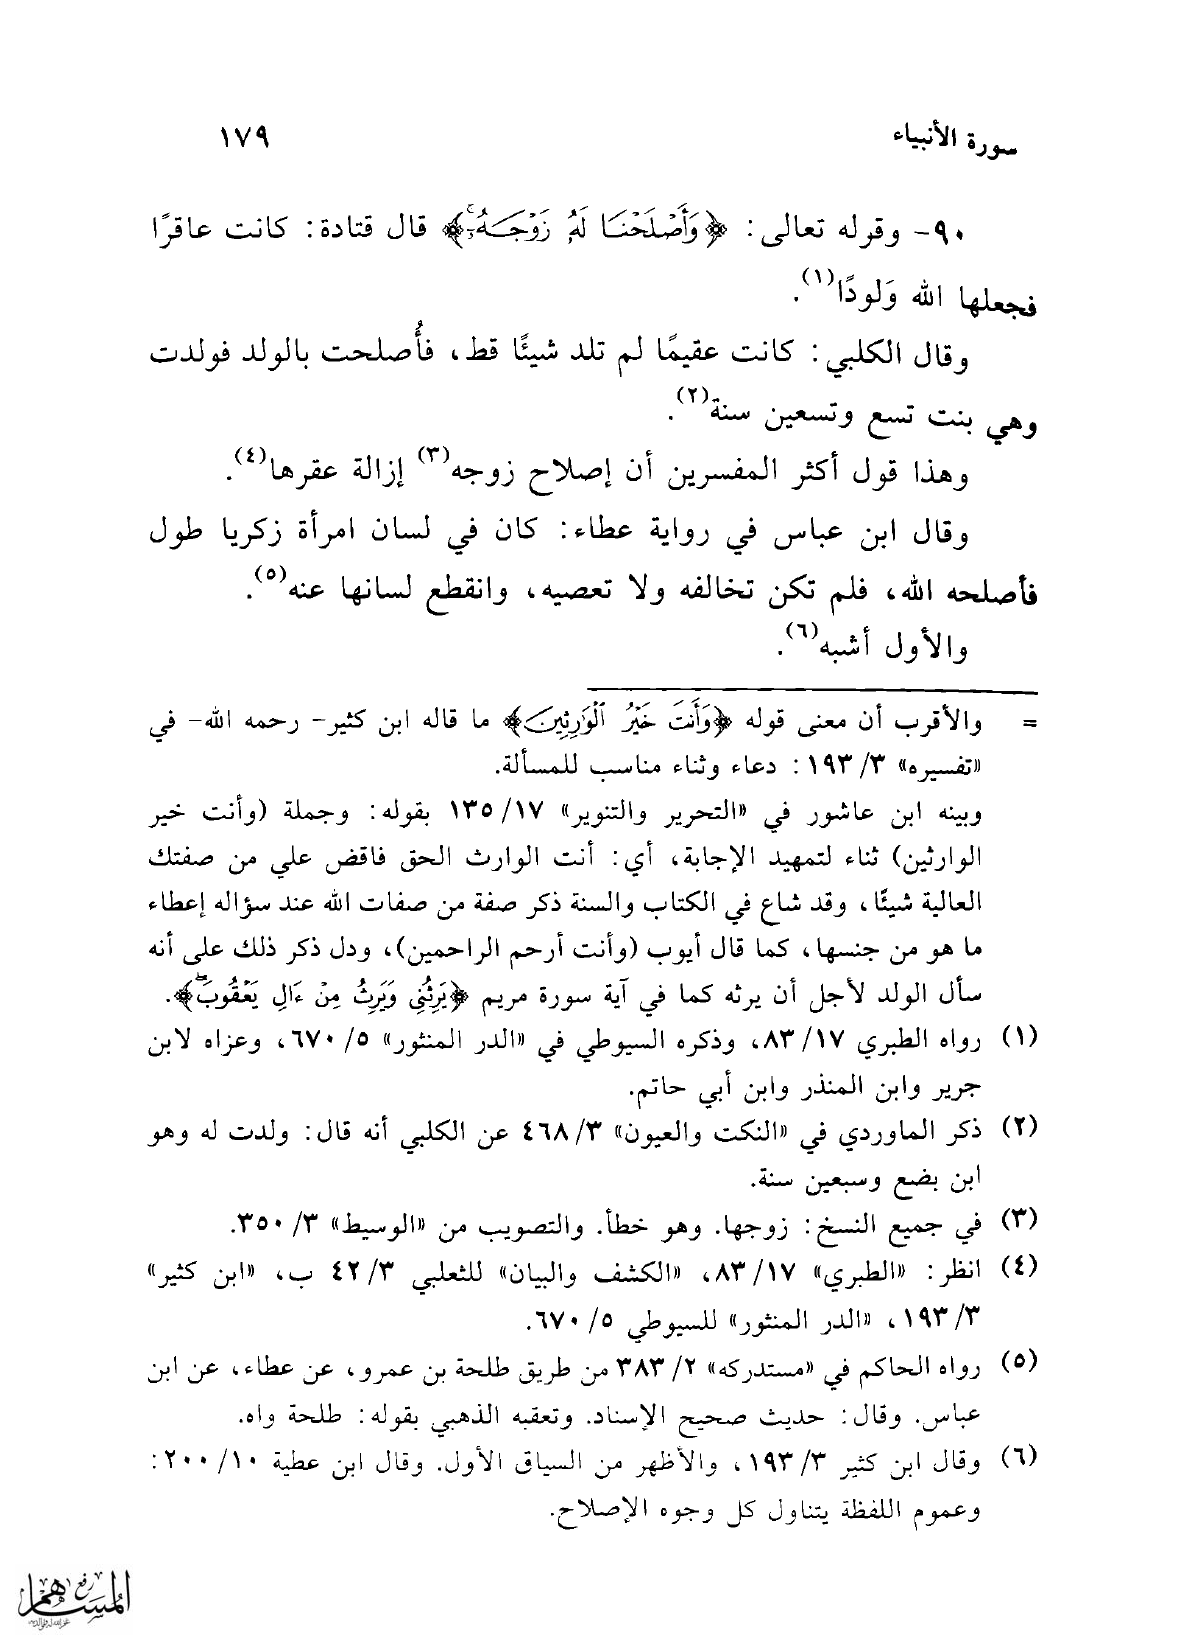 سورة الأنبياء ١٧٩
٩٠- وقوله تعالى: ﴿وَأَصْلَحْنَا لَهُ زَوْجَهُ﴾ قال قتادة: كانت عاقرًا
فجعلها الله وَلودًا(١).
وقال الكلبي: كانت عقيمًا لم تلد شيئًا قط، فأُصلحت بالولد فولدت
وهي بنت تسع وتسعين سنة(٢).
وهذا قول أكثر المفسرين أن إصلاح زوجه(٣) إزالة عقرها(٤).
وقال ابن عباس في رواية عطاء: كان في لسان امرأة زكريا طول
فأصلحه الله، فلم تكن تخالفه ولا تعصيه، وانقطع لسانها عنه(٥).
والأول أشبه(٦).
= والأقرب أن معنى قوله ﴿وَأَنتَ خَيْرُ الْوَارِثِينَ﴾ ما قاله ابن كثير- رحمه الله- في
«تفسيره» ٣/ ١٩٣: دعاء وثناء مناسب للمسألة.
وبينه ابن عاشور في «التحرير والتنوير» ١٧/ ١٣٥ بقوله: وجملة (وأنت خير
الوارثين) ثناء لتمهيد الإجابة، أي: أنت الوارث الحق فاقض علي من صفتك
العالية شيئًا، وقد شاع في الكتاب والسنة ذكر صفة من صفات الله عند سؤاله إعطاء
ما هو من جنسها، كما قال أيوب (وأنت أرحم الراحمين)، ودل ذكر ذلك على أنه
سأل الولد لأجل أن يرثه كما في آية سورة مريم ﴿يَرِثُنِي وَيَرِثُ مِنْ ءَالِ يَعْقُوبَ﴾.
(١) رواه الطبري ١٧/ ٨٣، وذكره السيوطي في «الدر المنثور» ٥/ ٦٧٠، وعزاه لابن
جرير وابن المنذر وابن أبي حاتم.
(٢) ذكر الماوردي في «النكت والعيون» ٣/ ٤٦٨ عن الكلبي أنه قال: ولدت له وهو
ابن بضع وسبعين سنة.
(٣) في جميع النسخ: زوجها. وهو خطأ. والتصويب من «الوسيط» ٣/ ٣٥٠.
(٤) انظر: «الطبري» ١٧/ ٨٣، «الكشف والبيان» للثعلبي ٣/ ٤٢ ب، «ابن كثير»
٣/ ١٩٣، «الدر المنثور» للسيوطي ٥/ ٦٧٠.
(٥) رواه الحاكم في «مستدركه» ٢/ ٣٨٣ من طريق طلحة بن عمرو، عن عطاء، عن ابن
عباس. وقال: حديث صحيح الإسناد. وتعقبه الذهبي بقوله: طلحة واه.
(٦) وقال ابن كثير ٣/ ١٩٣، والأظهر من السياق الأول. وقال ابن عطية ١٠/ ٢٠٠:
وعموم اللفظة يتناول كل وجوه الإصلاح.
رفع
المساهم